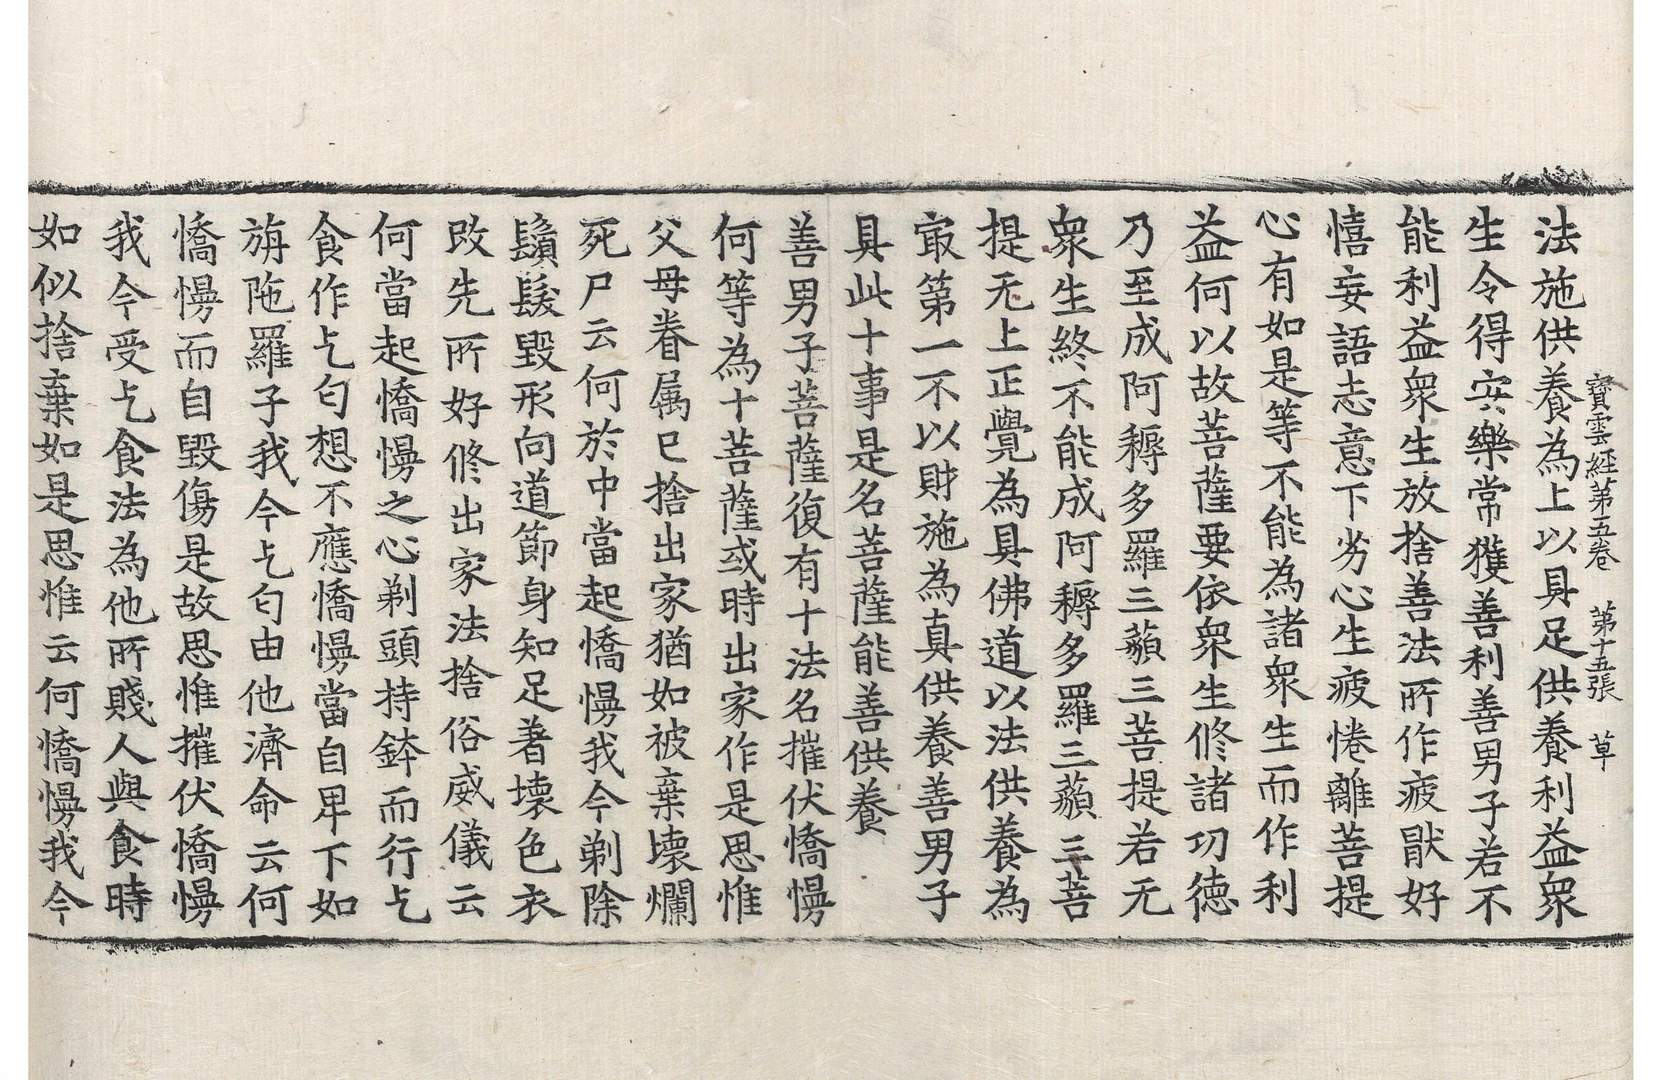 寶雲經第五卷 第十五張 草
法施供養為上以具足供養利益衆
生令得安樂常獲善利善男子若不
能利益衆生放捨善法所作疲猒好
憘妄語志意下劣心生疲惓離菩提
心有如是等不能為諸衆生而作利
益何以故菩薩要依衆生修諸功德
乃至成阿耨多羅三藐三菩提若无
衆生終不能成阿耨多羅三藐三菩
提无上正覺為具佛道以法供養為
冣第一不以財施為真供養善男子
具此十事是名菩薩能善供養
善男子菩薩復有十法名摧伏憍慢
何等為十菩薩或時出家作是思惟
父母眷属已捨出家猶如被棄壞爛
死尸云何於中當起憍慢我今剃除
鬚髮毀形向道節身知足著壞色衣
改先所好修出家法捨俗威儀云
何當起憍慢之心剃頭持鉢而行乞
食作乞匃想不應憍慢當自卑下如
旃陁羅子我今乞匃由他濟命云何
憍慢而自毀傷是故思惟摧伏憍慢
我今受乞食法為他所賤人與食時
如似捨棄如是思惟云何憍慢我今